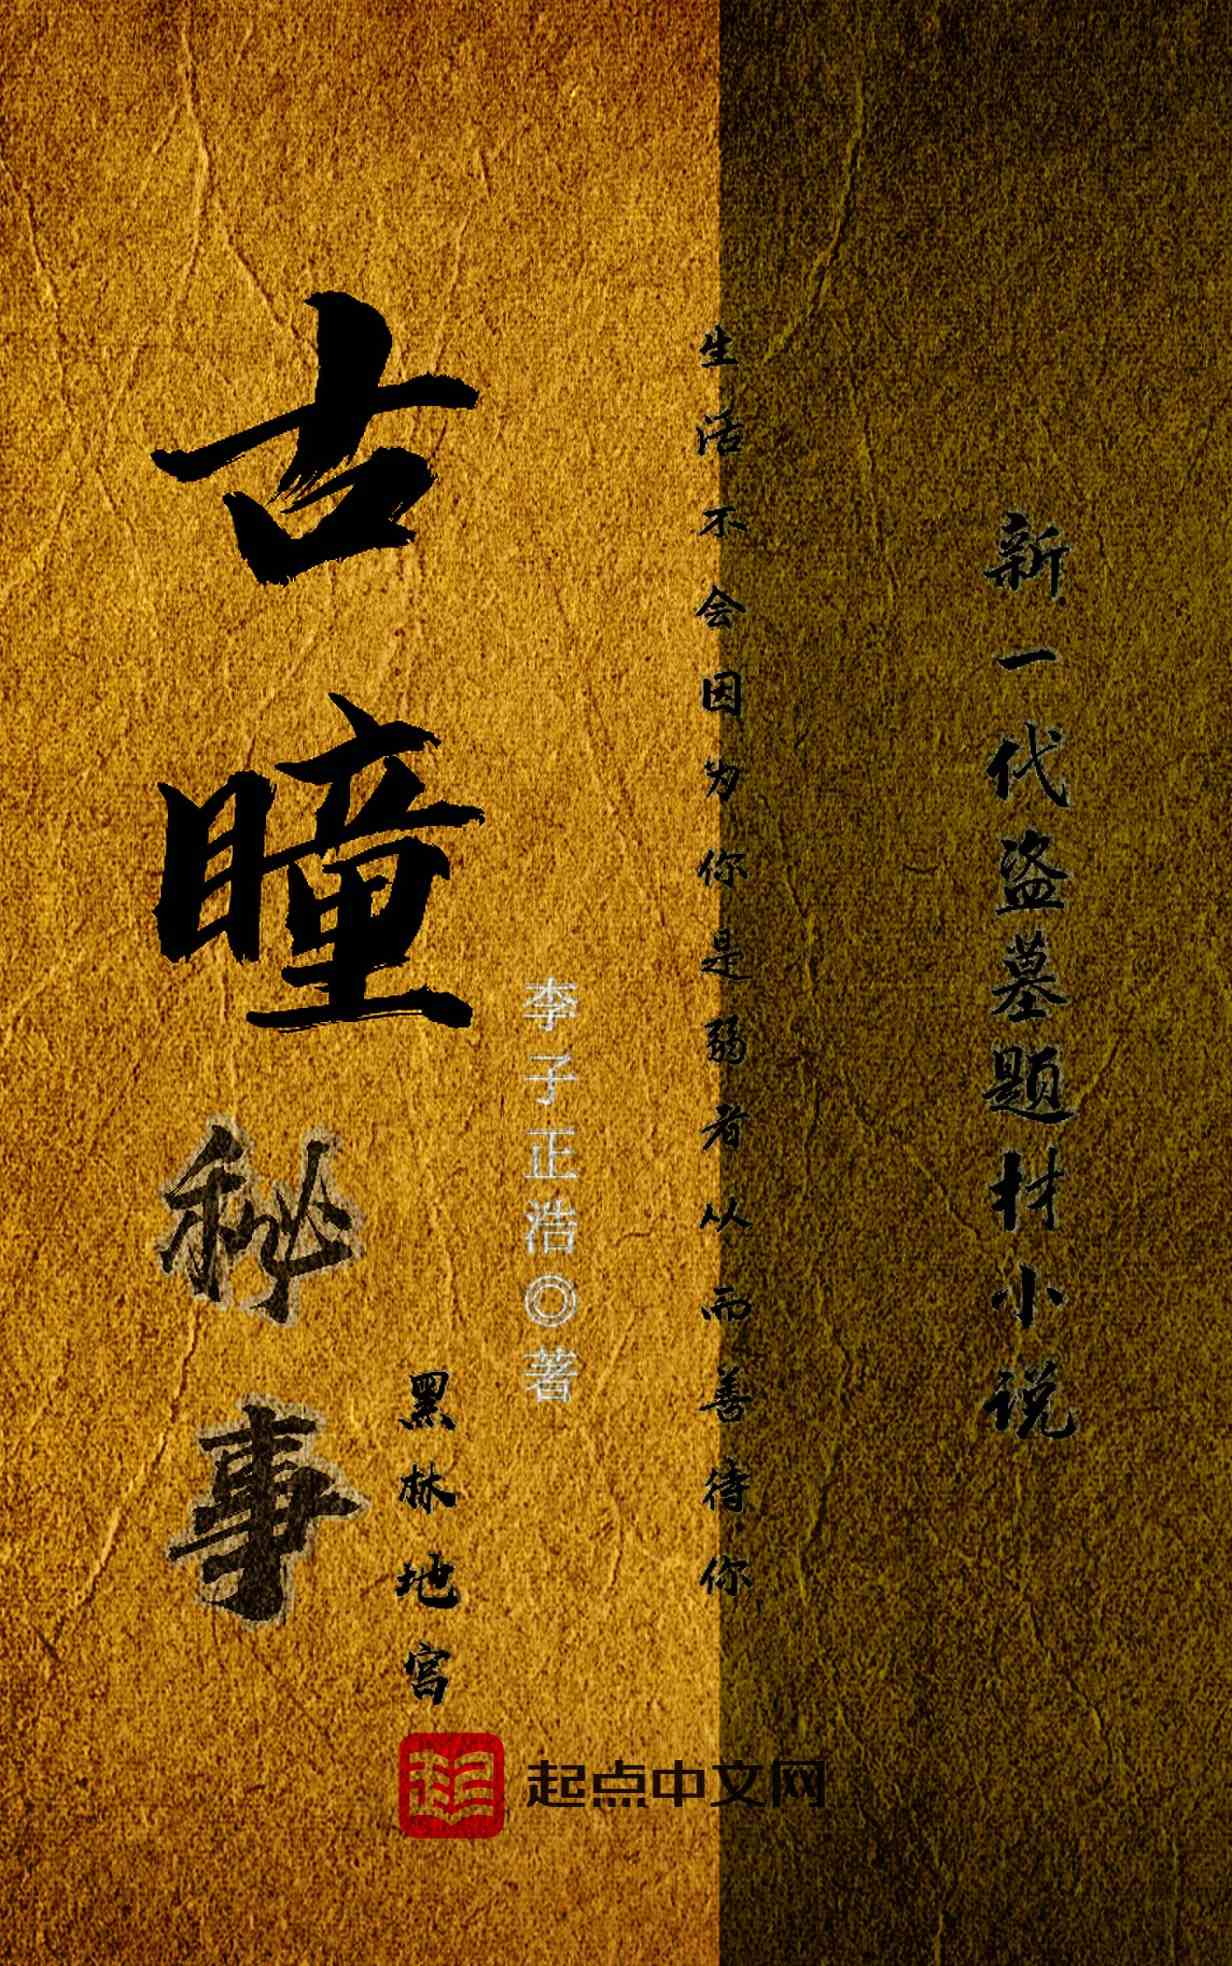 古瞳
秘事
黑林地宫
李子正浩◎著
生活不会因为你是弱者从而善待你
新一代盗墓题材小说
起点中文网